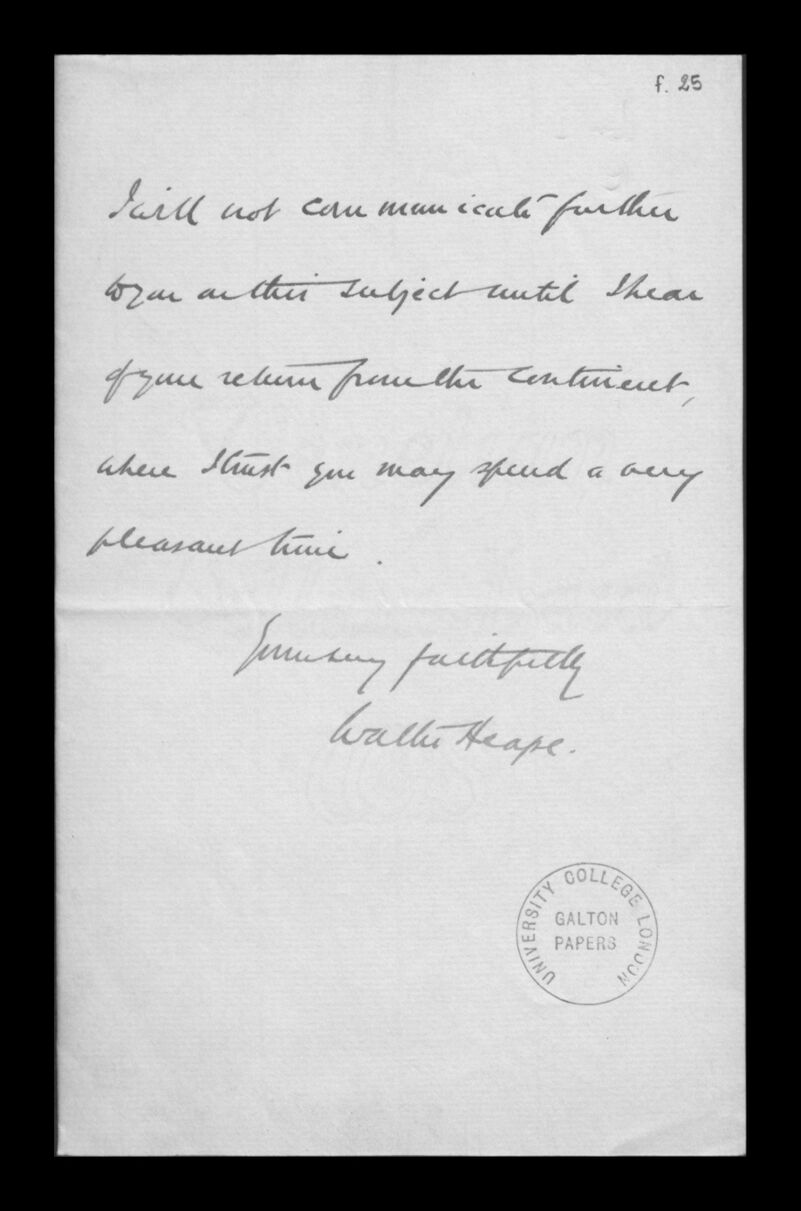 f. 25
I will not communicate further
to you on this subject until I hear
of your return from the Continent,
where I trust you may spend a very
pleasant time.
Yours very faithfully
Walter Heape.
UNIVERSITY COLLEGE LONDON
GALTON
PAPERS